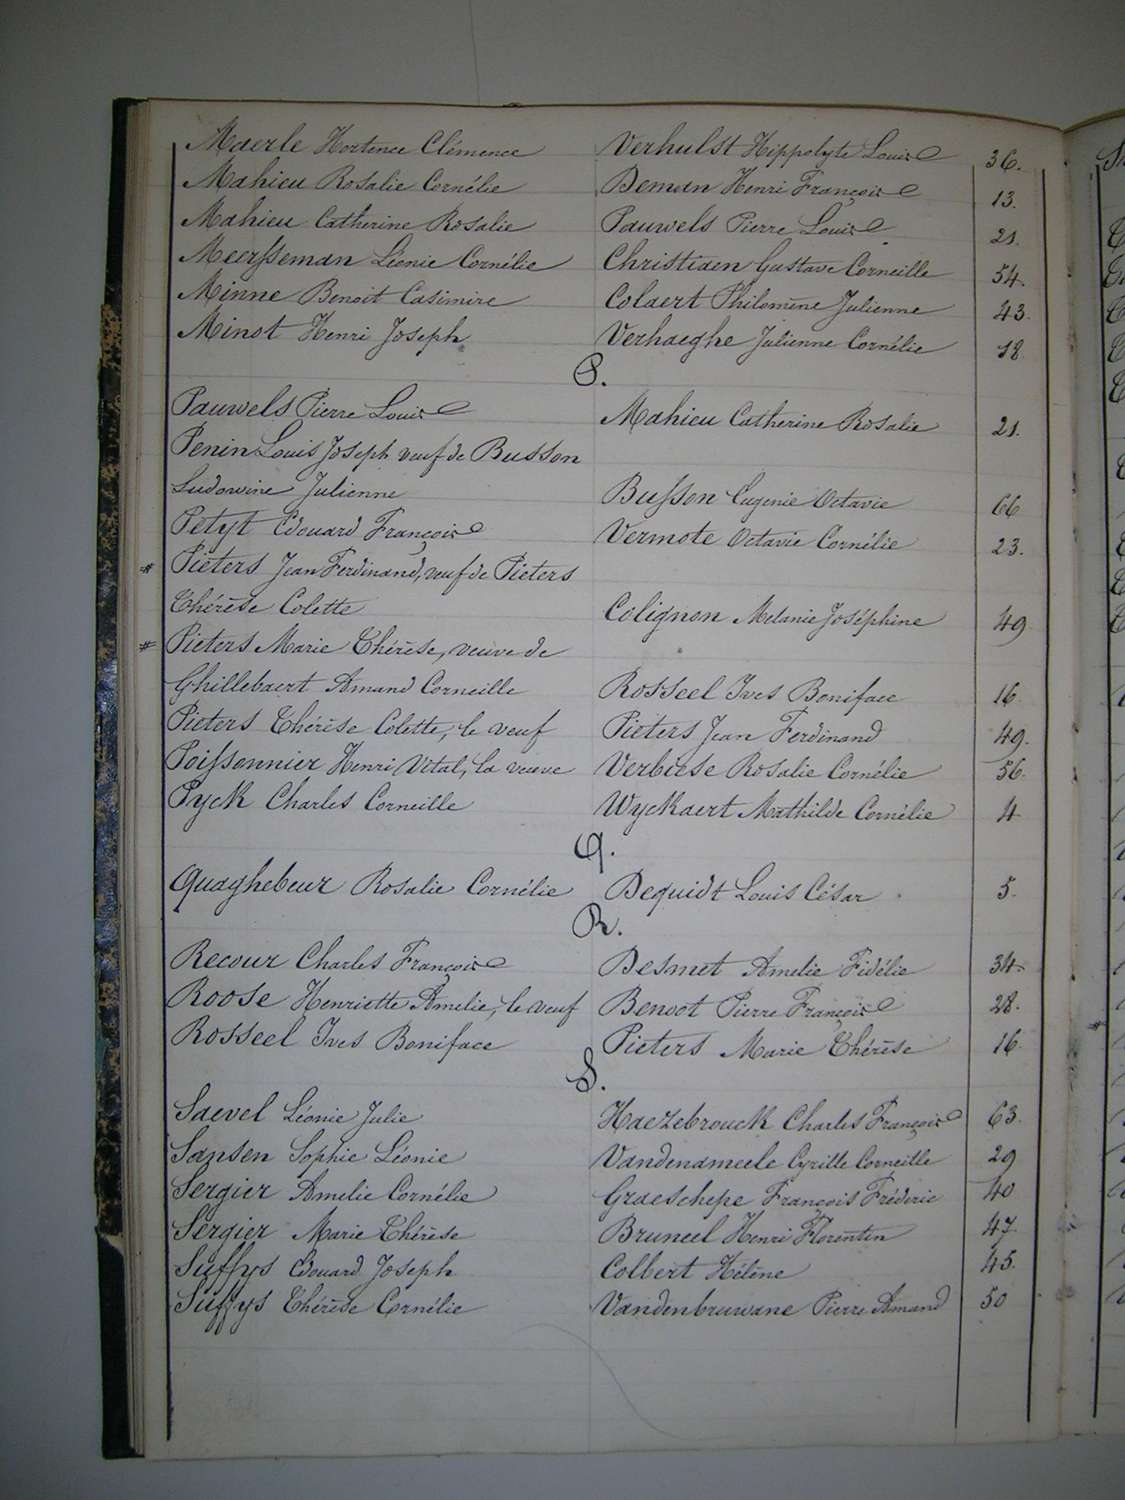 Maerle Hortence Clémence Verhulst Hippolyte Louis 36.
Mahieu Rosalie Cornélie Deman Henri François 13.
Mahieu Catherine Rosalie Pauwels Pierre Louis 21.
Meersseman Léonie Cornélie Christiaen Gustave Corneille 54.
Minne Benoit Casimire Colaert Philomène Julienne 43.
Minot Henri Joseph Verhaeghe Julienne Cornélie 18
P.
Pauwels Pierre Louis Mahieu Catherine Rosalie 21.
Penin Louis Joseph veuf de Busson
Ludowine Julienne Busson Eugenie Octavie 66
Petyt Edouard François Vermote Octavie Cornélie 23.
# Pieters Jean Ferdinand, veuf de Pieters
Thérèse Colette Colignon Melanie Joséphine 49.
# Pieters Marie Thérèse, veuve de
Ghillebaert Amand Corneille Rosseel Ives Boniface 16.
Pieters Thérèse Colette, le veuf Pieters Jean Ferdinand 49.
Poissonnier Henri Vital, la veuve Verbiese Rosalie Cornélie 56.
Pyck Charles Corneille Wyckaert Mathilde Cornélie 4
Q.
Quaghebeur Rosalie Cornélie Dequidt Louis César 5.
R.
Recour Charles François Desmet Amelie Fidélie 34.
Roose Henriette Amelie, le veuf Benoot Pierre François 28.
Rosseel Ives Boniface Pieters Marie Thérèse 16.
S.
Saevel Léonie Julie Haezebrouck Charles François 63.
Sansen Sophie Léonie Vandenameele Cyrille Corneille 29
Sergier Amelie Cornélie Graeschepe François Fréderic 40
Sergier Marie Thérèse Bruneel Henri Florentin 47.
Suffys Edouard Joseph Colbert Hélène 45.
Suffys Thérèse Cornélie Vandenbruwane Pierre Amand 50